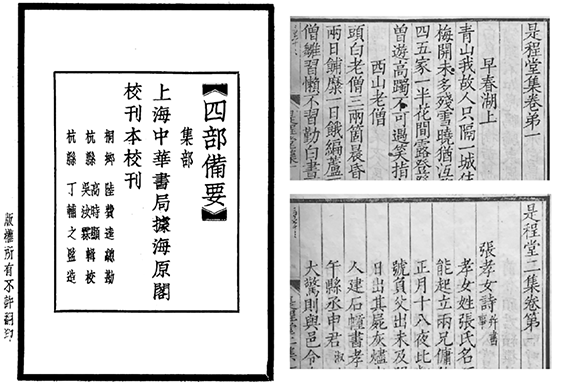 【四部備要】
集部
上海中華書局據海原閣
校刊本校刊
桐鄉 陸費逵總勘
杭縣 高時顯 吳汝霖 輯校
杭縣 丁輔之監造
版權所有不許翻印
是程堂集卷第一
早春湖上
青山我故人只隔一城住
梅開未多殘雪曉猶冱
四五家一半花間露登
曾遊高躅不可遇笑指
西山老僧
頭白老僧三兩箇晨昏
兩日餔糜一日餓編蘆
僧雛習懶不習勤白晝
是程堂二集卷第
張孝女詩 并書事
孝女姓張氏名
能起立兩兄傭
正月十八夜比
號負父出未及
日出其屍灰燼
人建石幢書孝
午縣丞申君
大驚則與邑令